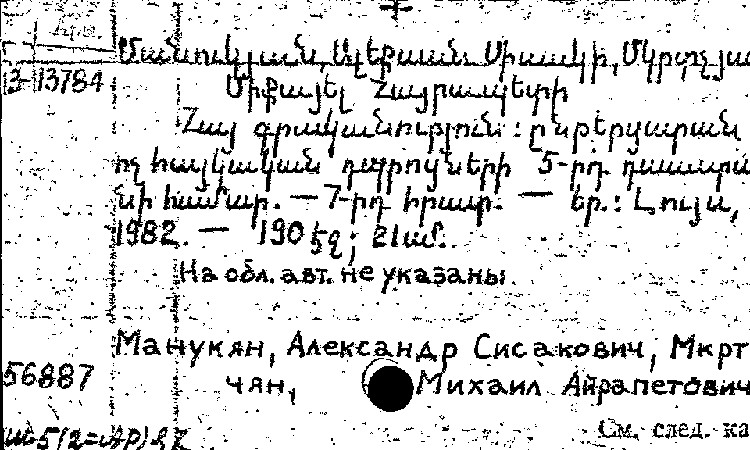 Арм.
13784
Մանուկյան, Ալեքսանն Սիսակի, Մկրտչյա
Միքայել Հայրապետի
Հայ գրականություն: ընթերցարան
ոչ հայկական դպրոցների 5-րդ դասարա
նի համար. — 7-րդ հրատ. — Եր.: Լույս,
1982. — 190 էջ; 21սմ.
На обл. авт. не указаны
Манукян, Александр Сисакович, Мкрт
56887
чян, Михаил Айрапетович
См. след. ка